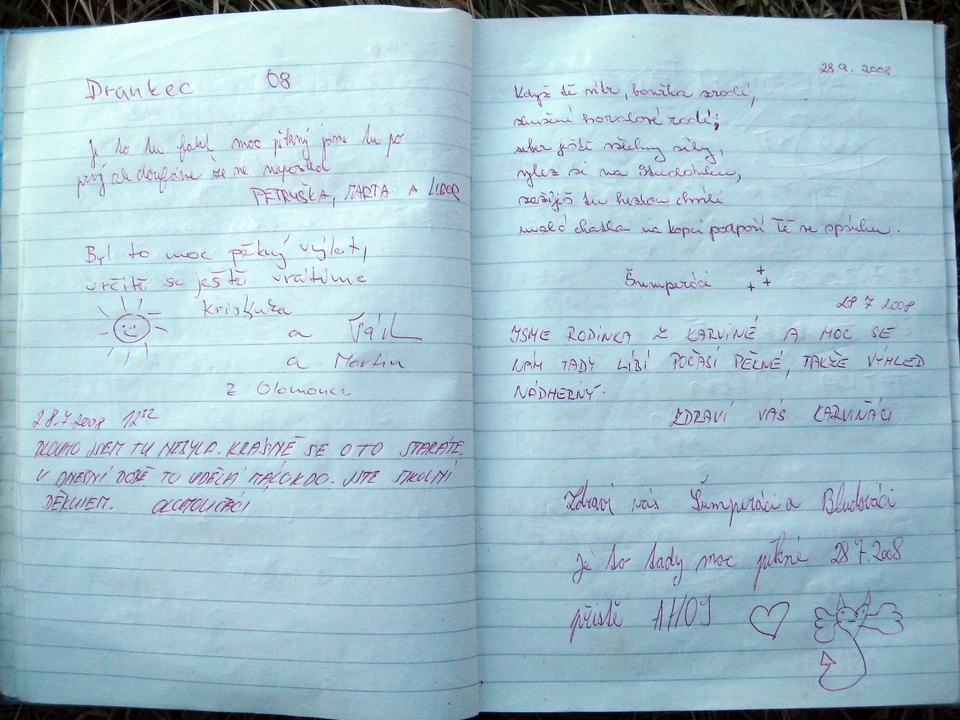 Drankec 08
Je to tu fakt moc pěkný jsme tu po
prvý ale doufáme že ne naposled
PETRUŠKA, MARTA A LIBOR
Byl to moc pěkný výlet,
určitě se ještě vrátíme
Kristýna
a
a Martin
z Olomouce
28.7.2008 12
DLOUHO JSEM TU NEBYLA. KRÁSNĚ SE O TO STARÁTE.
V DNEŠNÍ DOBĚ TO UDĚLÁ MÁLOKDO. JSTE ŠIKOLNÍ
DĚKUJEM. OLOMOUČÁCI
28 9. 2008
Když tě vítr, bouřka zradí,
zkušení horalové radí;
seber ještě všechny síly,
vylez si na Studánku,
zažiješ tu hezkou chvíli
malá chatka na kopci podpoří Tě ve spánku.
Šumperáci
28.7 2008
JSME RODINKA Z KARVINÉ A MOC SE
NÁM TADY LÍBÍ POČASÍ PĚČNÉ, TAKŽE VÝHLED
NÁDHERNÝ.
ZDRAVÍ VÁS KARVIŇÁCI
Zdraví vás Šumperáci a Bludováci
Je to tady moc pěkné 28.7.2008
příště AHOJ